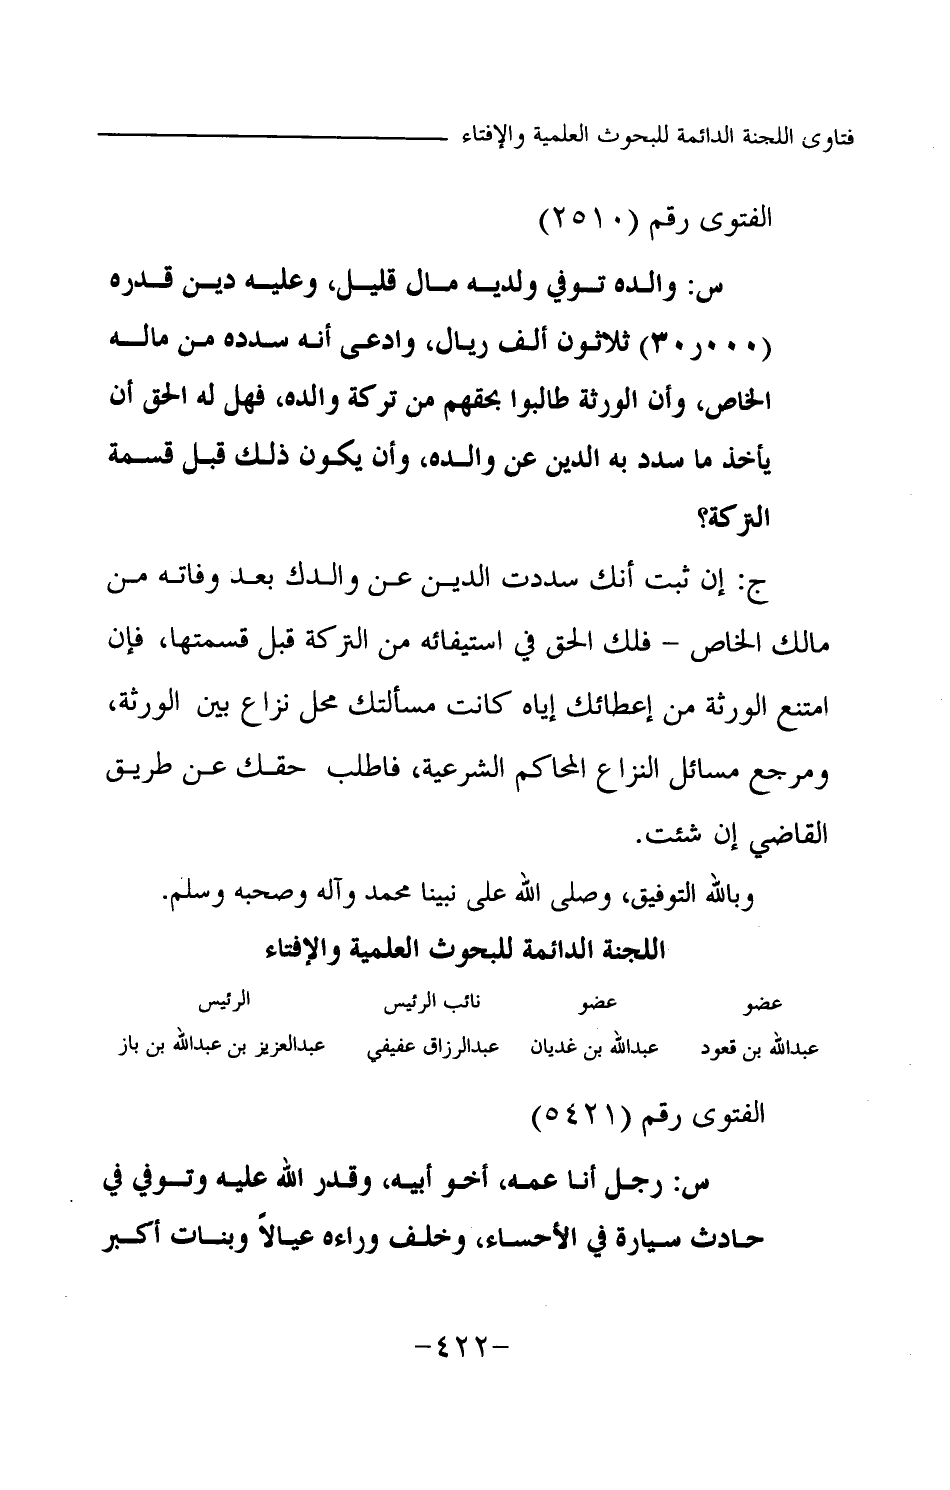 فتاوى اللجنة الدائمة للبحوث العلمية والإفتاء
الفتوى رقم (٢٥١٠)
س: والده توفي ولديه مال قليل، وعليه دين قدره
(٣٠ر٠٠٠) ثلاثون ألف ريال، وادعى أنه سدده من ماله
الخاص، وأن الورثة طالبوا بحقهم من تركة والده، فهل له الحق أن
يأخذ ما سدد به الدين عن والده، وأن يكون ذلك قبل قسمة
التركة؟
ج: إن ثبت أنك سددت الدين عن والدك بعد وفاته من
مالك الخاص – فلك الحق في استيفائه من التركة قبل قسمتها، فإن
امتنع الورثة من إعطائك إياه كانت مسألتك محل نزاع بين الورثة،
ومرجع مسائل النزاع المحاكم الشرعية، فاطلب حقك عن طريق
القاضي إن شئت.
وبالله التوفيق، وصلى الله على نبينا محمد وآله وصحبه وسلم.
اللجنة الدائمة للبحوث العلمية والإفتاء
عضو عضو نائب الرئيس الرئيس
عبدالله بن قعود عبدالله بن غديان عبدالرزاق عفيفي عبدالعزيز بن عبدالله بن باز
الفتوى رقم (٥٤٢١)
س: رجل أنا عمه، أخو أبيه، وقدر الله عليه وتوفي في
حادث سيارة في الأحساء، وخلف وراءه عيالاً وبنات أكبر
–٤٢٢–